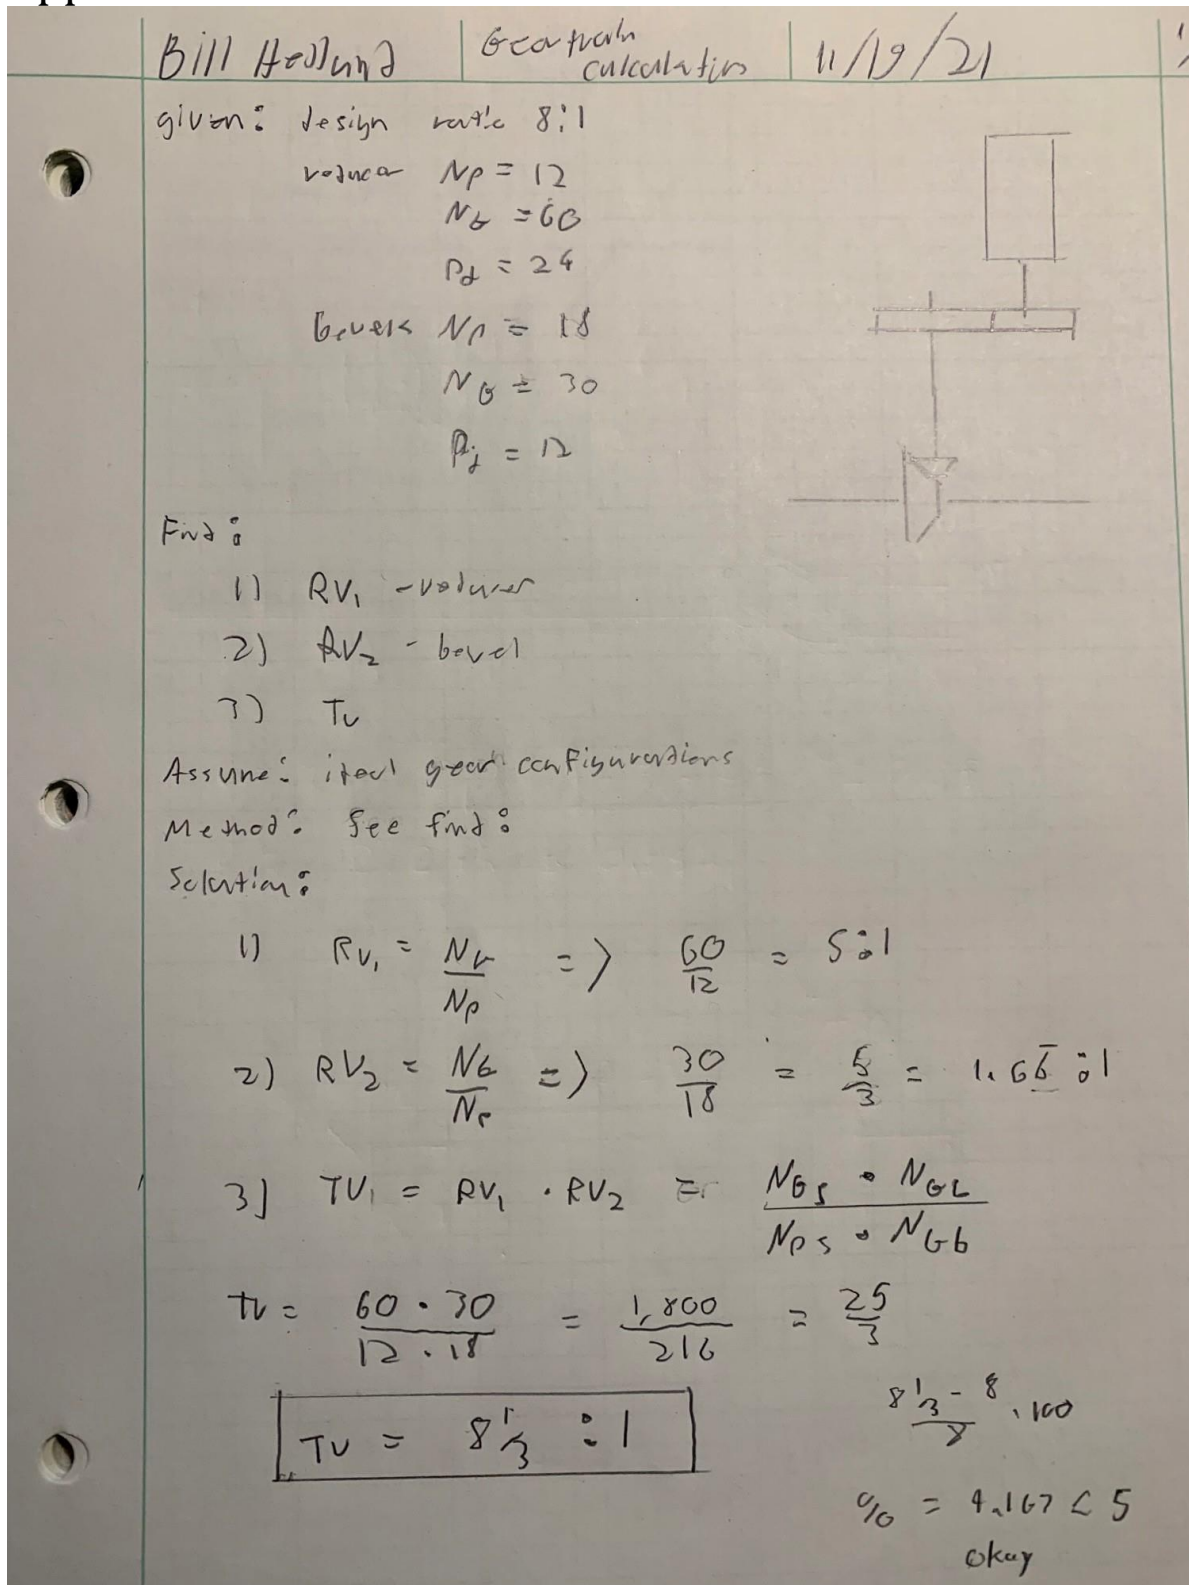 Bill Hedlund Geartrain calculations 11/19/21
given: design ratio 8:1
reducer Np = 12
NG = 60
Pd = 24
bevels Np = 18
NG = 30
Pd = 12
Find:
1) RV₁ - reducer
2) RV₂ - bevel
3) TV
Assume: ideal gear configurations
Method: See find:
Solution:
1) RV₁ = NG/Np => 60/12 = 5:1
2) RV₂ = NG/Np => 30/18 = 5/3 = 1.66̅:1
3) TV₁ = RV₁ · RV₂ = NGs · NGb / NPs · NGb
TV = 60 · 30 / 12 · 18 = 1,800/216 = 25/3
8 1/3 - 8 / 8 · 100
TV = 8 1/3 : 1
% = 4.167 < 5
okay